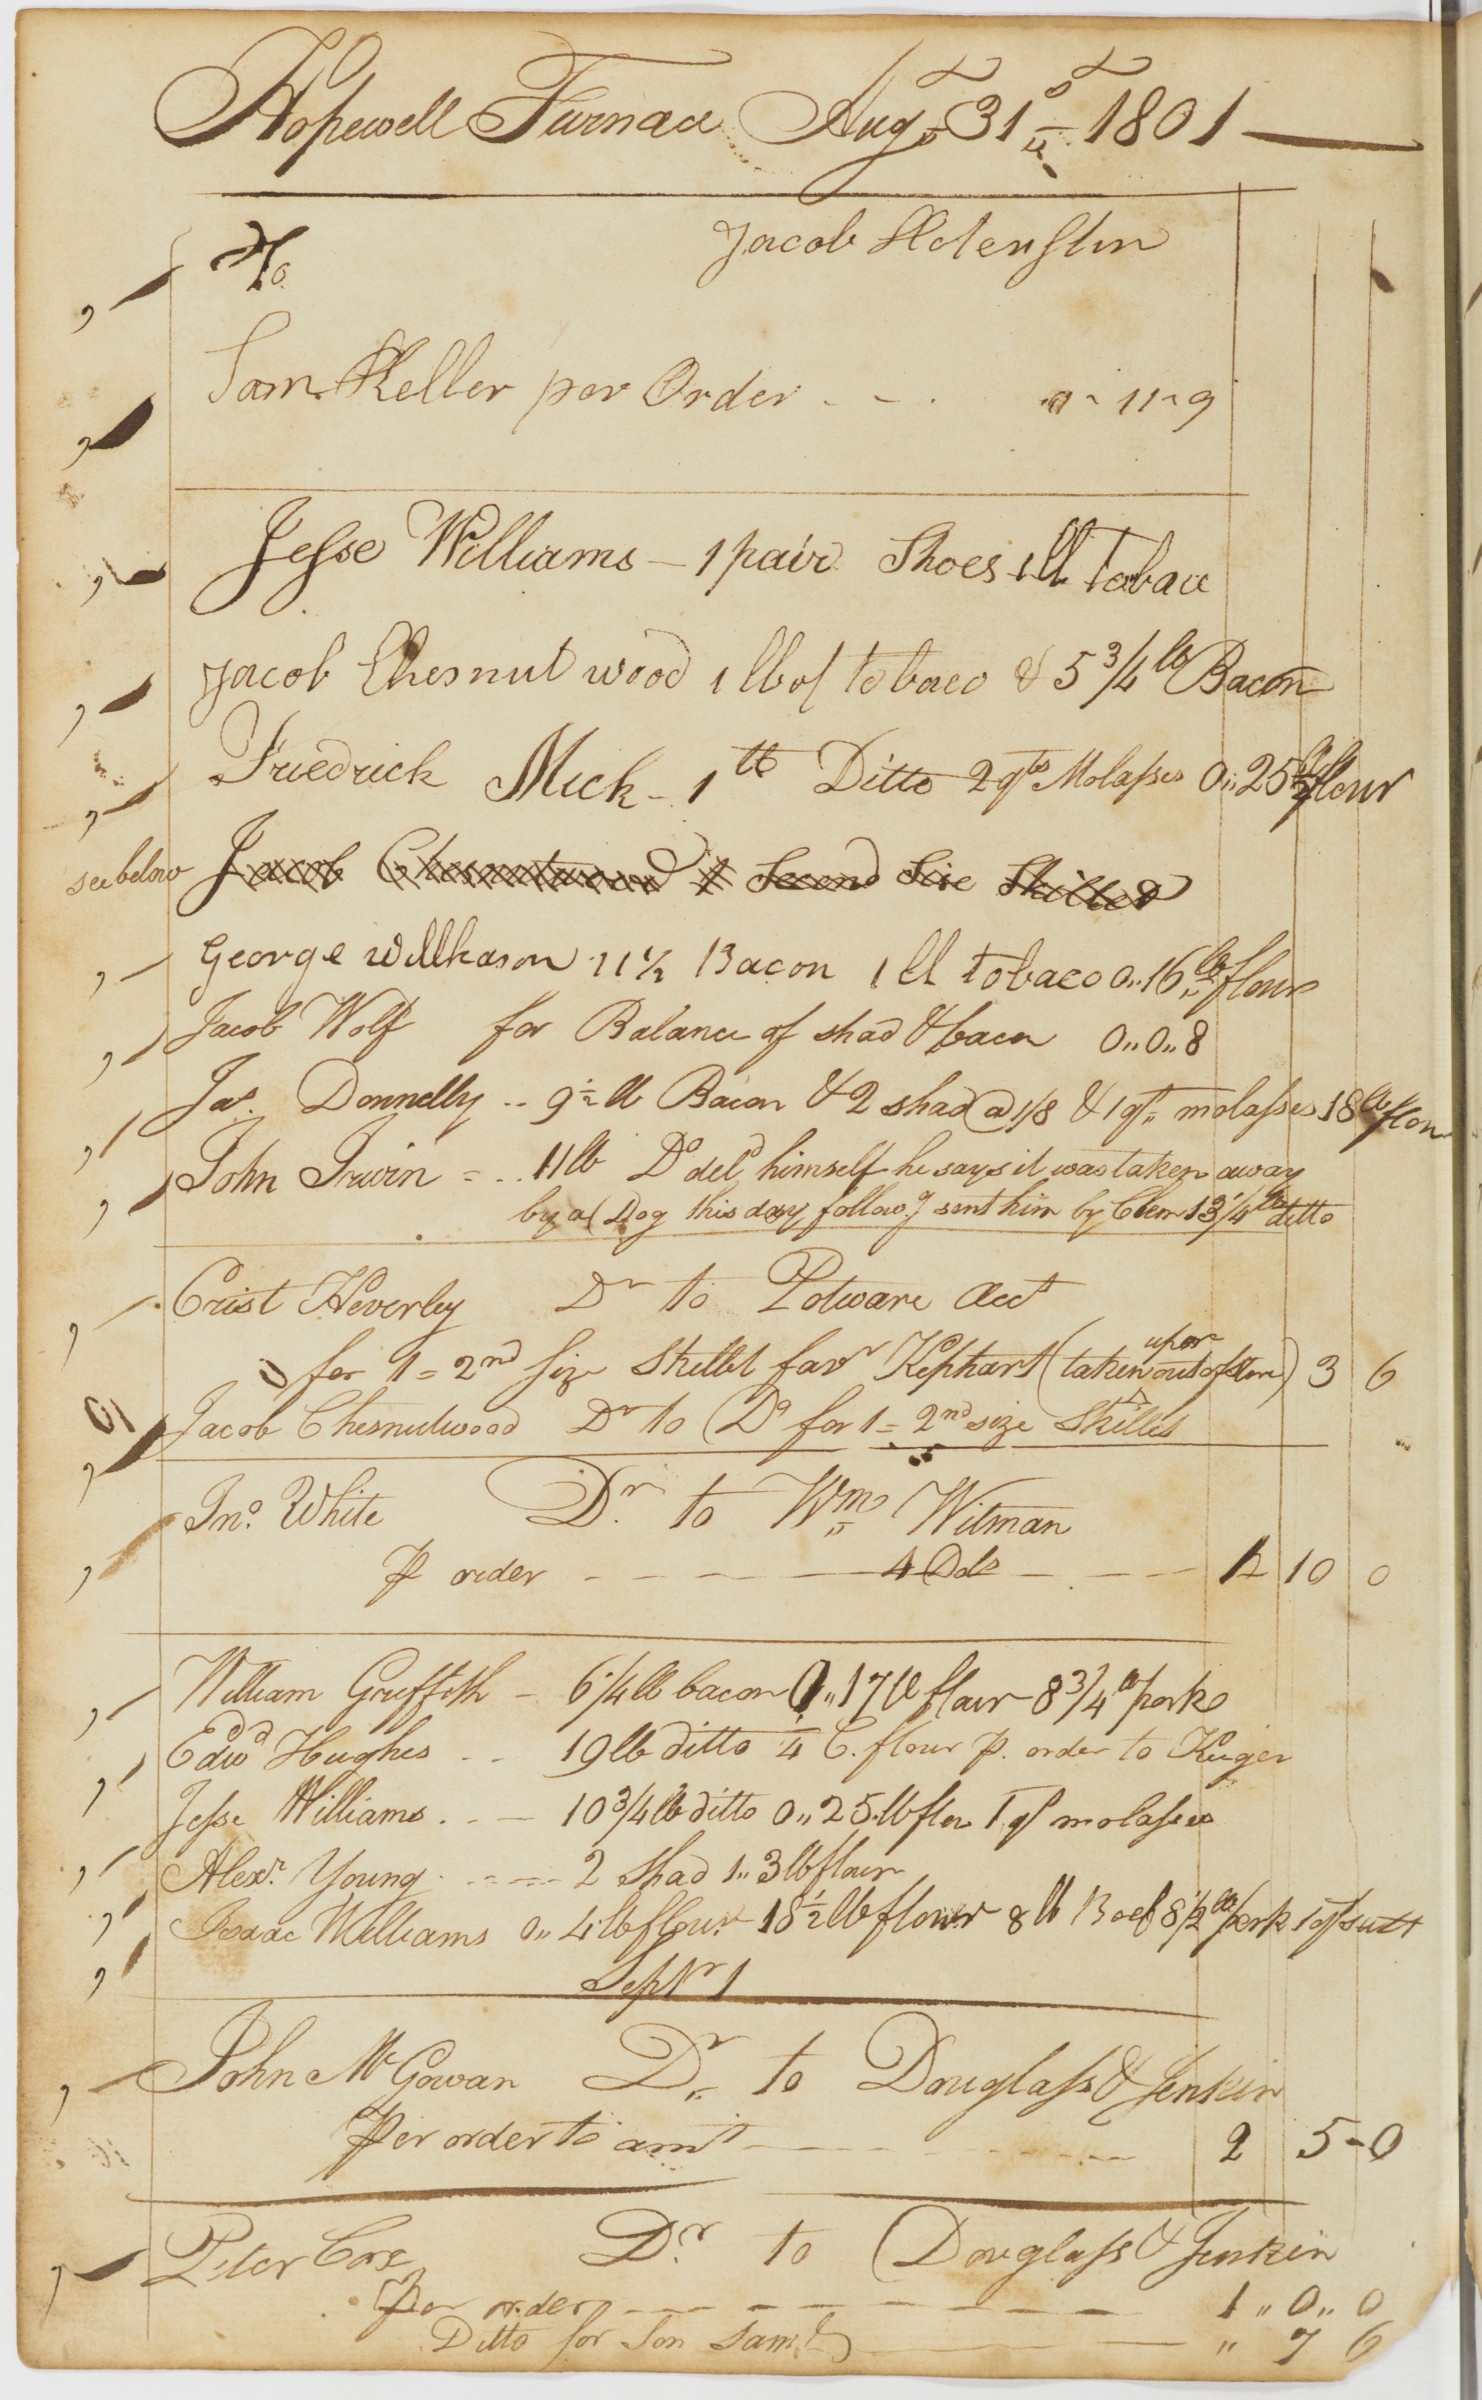 Hopewell Furnace Augt 31st 1801
To
Jacob Hotenstin
Sam Keller per Order - - . 0 - 11 - 9
Jesse Williams - 1 pair Shoes 1 lb Tobaco
Jacob Chesnut wood 1 lb of tobaco & 5 3/4 lb Bacon
Friedrick Mick - 1 lb Ditto 2 qts Molasses 0,, 25 lb flour
see below Jacob Chesnutwood 1 Second Sise Skillet
George Willkason 11 1/2 Bacon 1 lb tobaco 0,, 16 lb flour
Jacob Wolf for Balance of shad & bacon 0,, 0,, 8
Jas. Donnelly .. 9 1/2 lb Bacon & 2 shad @ 1/8 & 1 qt molasses 18 lb flour
John Irwin = .. 11 lb Do deld himself he says it was taken away
by a Dog this day follow.g sent him by Clem 13 1/4 lb ditto
Crist Heverley Dr to Potware Acct
for 1 = 2nd size Skillet favr Kephart (taken upon out of store) 3 6
Jacob Chesnutwood Dr to Do for 1 = 2nd size Skillet
Jno. White Dr. to Wm Witman
P order - - - - 4 Dols - - - 1 10 0
William Griffith - 6 1/4 lb bacon 0,, 17 lb flour 8 3/4 lb pork
Edwd Hughes .. 19 lb ditto 1/4 C. flour p. order to Kuger
Jesse Williams . - - 10 3/4 lb ditto 0,, 25 lb flou 1 qt molasses
Alexr. Young - - - - 2 Shad 1,, 3 lb flour
Isaac Williams 0,, 4 lb flour 18 1/2 lb flowr 8 lb Beef 8 1/2 lb pork 1 qt salt
Septr 1
John McGowan Dr to Douglass & Jenkin
Per order to amt - - - - 2 5 - 0
Peter Cox Dr. to Douglass & Jenkin
Per order - - - - - - 1 ,, 0 ,, 0
Ditto for Son Saml ,, 7 6